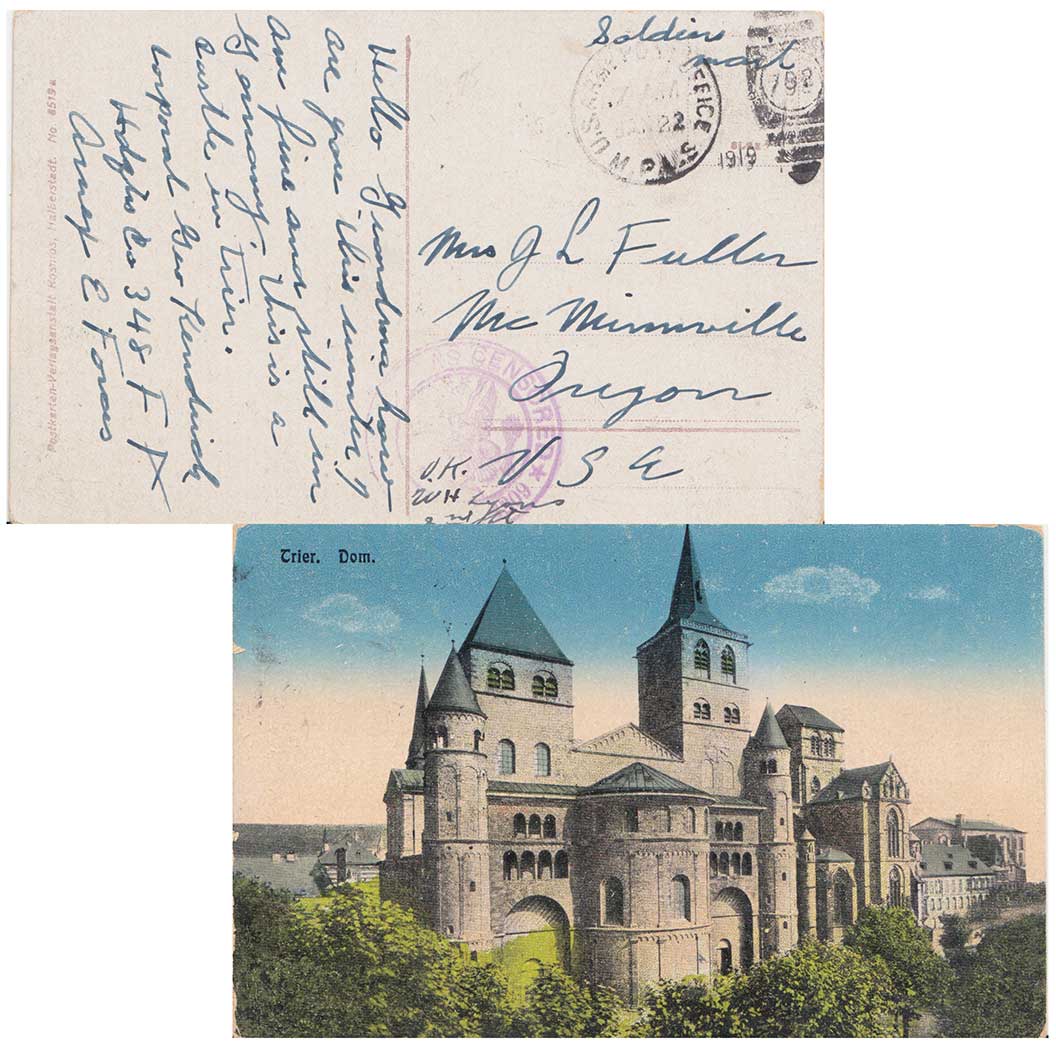 Soldiers
mail
U.S. ARMY POST OFFICE
JAN 22
1919
792
Mrs J L Fuller
Mc Minnville
Oregon
U S A
CENSORED
O.K.
WH Lyons
Hello Grandma how
are you this winter I
am fine and still in
Germany this is a
castle in Trier.
Corporal Geo Kendrick
Hdqtrs Co 348 F A
Army E Forces
Postkarten-Verlagsanstalt Kosmos, Halberstadt. No. 8519a
Trier. Dom.